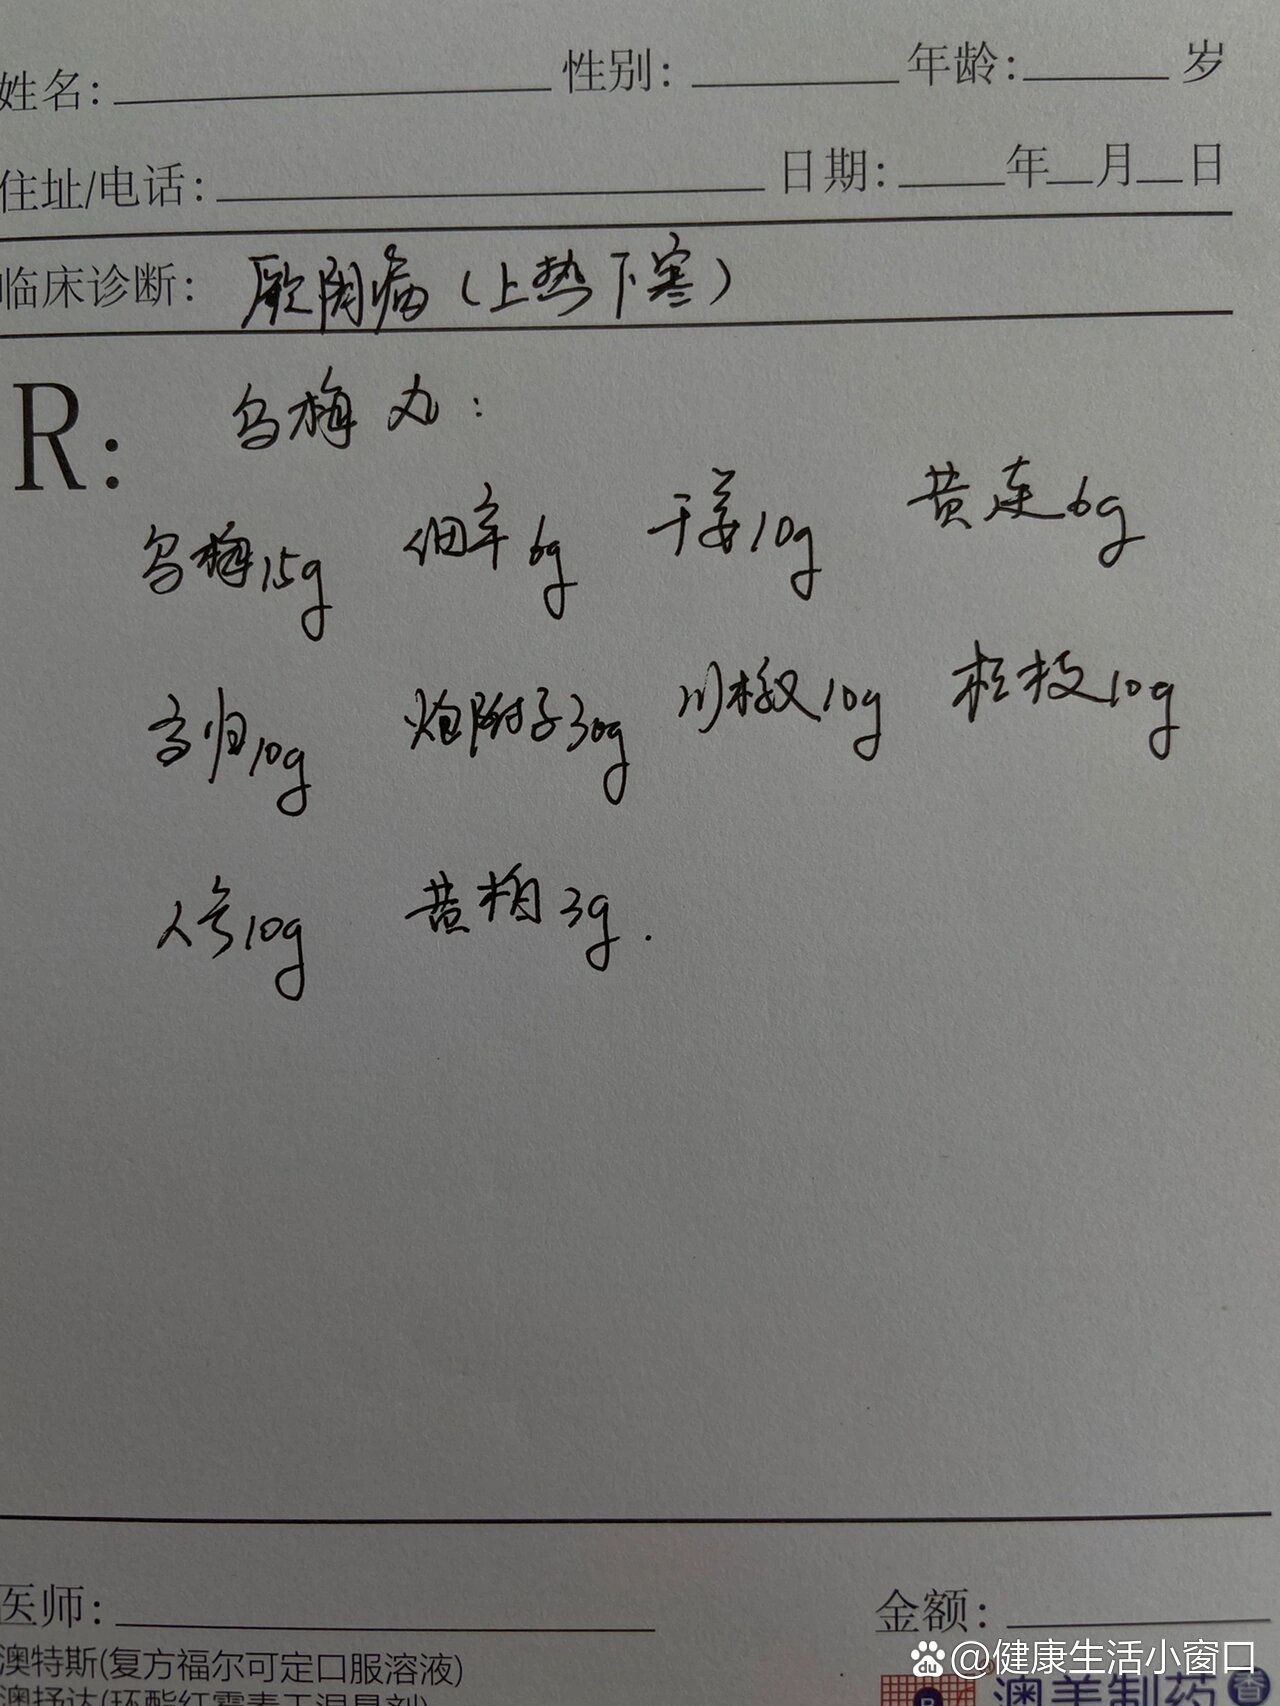 姓名: 性别: 年龄: 岁
住址/电话: 日期: 年 月 日
临床诊断: 厥阴病(上热下寒)
R: 乌梅丸:
乌梅15g 细辛6g 干姜10g 黄连6g
当归10g 炮附子30g 川椒10g 桂枝10g
人参10g 黄柏3g.
医师: 金额:
澳特斯(复方福尔可定口服溶液)
澳抒达(环酯红霉素干混悬剂)
澳美制药 香
@健康生活小窗口